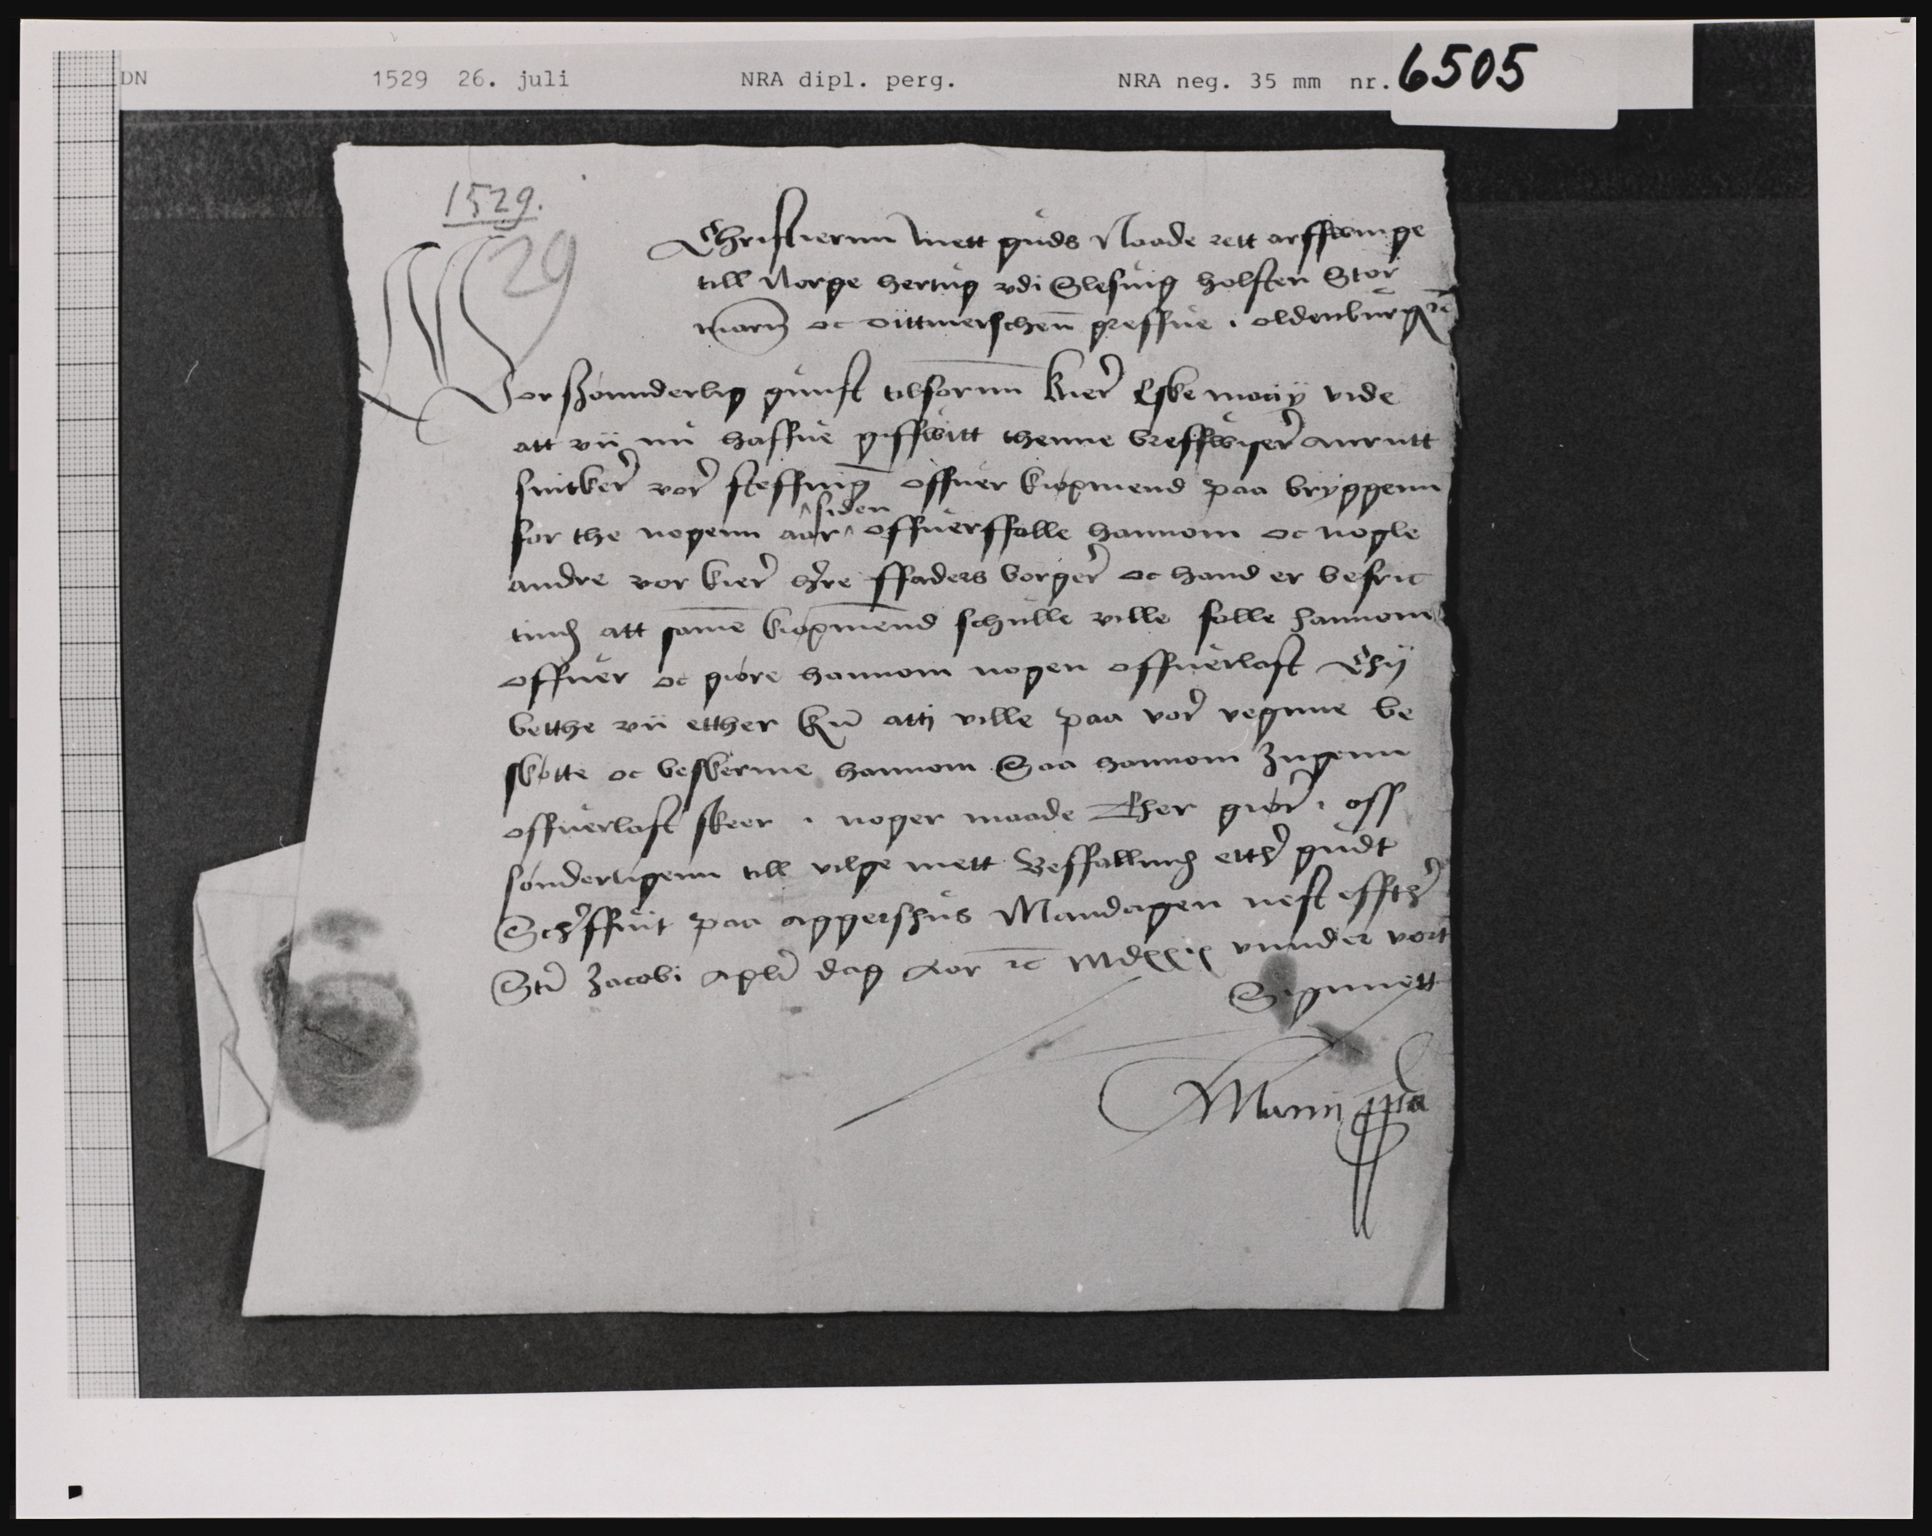 DN 1529 26. juli NRA dipl. perg. NRA neg. 35 mm nr. 6505
1529.
29
Christiernn mett guds Naade rett arffwinge
till Norge hertug vdi Slesuig holsten Stor
marn oc dittmerschenn greffue i oldenburg
Vor szønnderlig gunst tilfornn kier Eske vide
att vii nu haffue giffwitt thenne breffwiser
snitker vor steffnig offuer kiøpmend paa bryggenn
for the nogenn aar siden offuerffalle hannom oc nogle
andre vor kier h're ffaders borger oc hand er befric
tind att same kiøpmend schulle ville falle hannom
offuer oc giøre hannom nogen offuerlast Thij
betthe vii etther attj ville paa vor vegnne be
skøtte oc beskerme hannom Saa hannom Jngenn
offuerlast skeer i noger maade Ther giør i oss
sønderligenn till vilge mett Beffalling etth' gudt
Sch'ffuit paa aggershus Mandagen nest effth'
Sti Jacobi apli dag Aar Mdxxix vnnder vort
Signnett